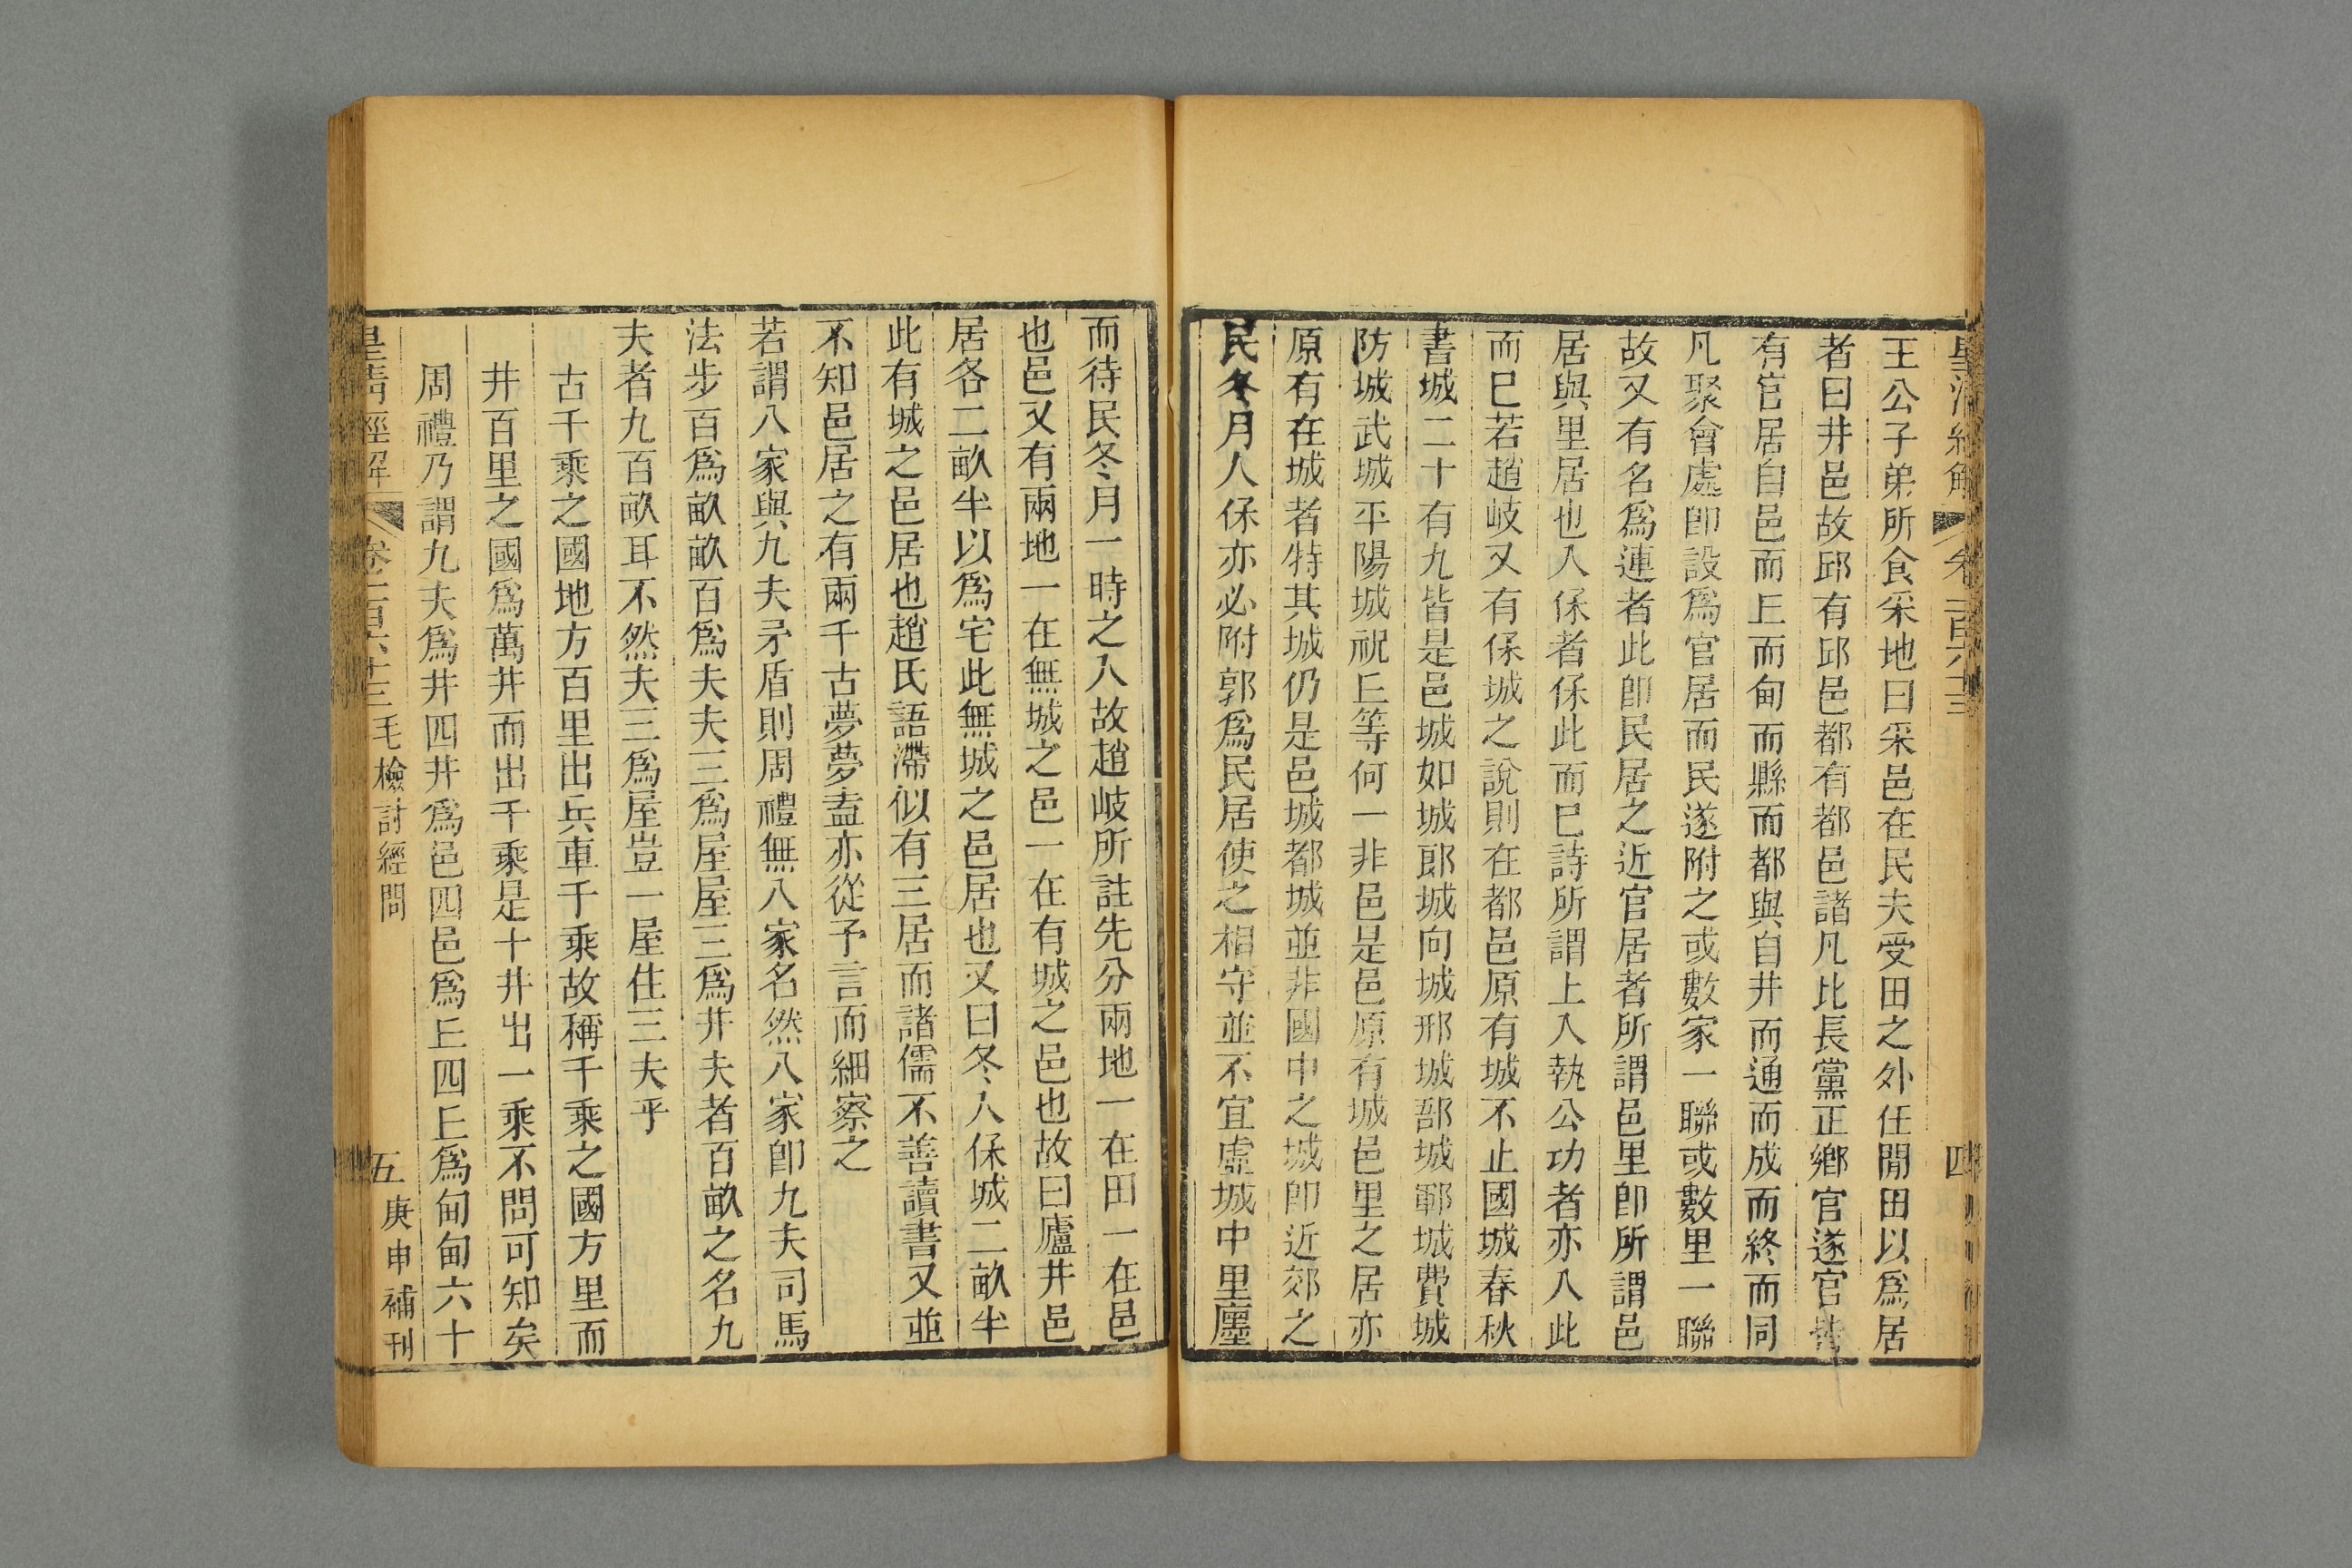 皇清經解 卷一百六十三 四
王公子弟所食采地曰采邑在民夫受田之外任閒田以爲居
者曰井邑故邱有邱邑都有都邑諸凡比長黨正鄉官遂官皆
有官居自邑而丘而甸而縣而都與自井而通而成而終而同
凡聚會處卽設爲官居而民遂附之或數家一聯或數里一聯
故又有名爲連者此卽民居之近官居者所謂邑里卽所謂邑
居與里居也入保者保此而已詩所謂上入執公功者亦入此
而已若趙岐又有保城之說則在都邑原有城不止國城春秋
書城二十有九皆是邑城如城郎城向城邢城郚城鄆城費城
防城武城平陽城祝丘等何一非邑是邑原有城邑里之居亦
原有在城者特其城仍是邑城都城並非國中之城卽近郊之
民冬月入保亦必附郭爲民居使之相守並不宜虛城中里廛
而待民冬月一時之入故趙岐所註先分兩地一在田一在邑
也邑又有兩地一在無城之邑一在有城之邑也故曰廬井邑
居各二畝半以爲宅此無城之邑居也又曰冬入保城二畝半
此有城之邑居也趙氏語滯似有三居而諸儒不善讀書又並
不知邑居之有兩千古夢夢盍亦從予言而細察之
若謂八家與九夫矛盾則周禮無八家名然八家卽九夫司馬
法步百爲畝畝百爲夫夫三爲屋屋三爲井夫者百畝之名九
夫者九百畝耳不然夫三爲屋豈一屋住三夫乎
古千乘之國地方百里出兵車千乘故稱千乘之國方里而
井百里之國爲萬井而出千乘是十井出一乘不問可知矣
周禮乃謂九夫爲井四井爲邑四邑爲丘四丘爲甸甸六十
皇清經解 卷一百六十三 毛檢討經問 五 庚申補刊